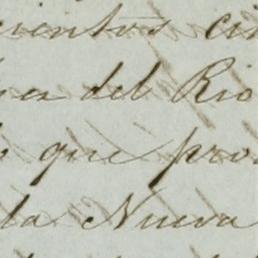 cientos ci
del Rio
que pro
la Nueva